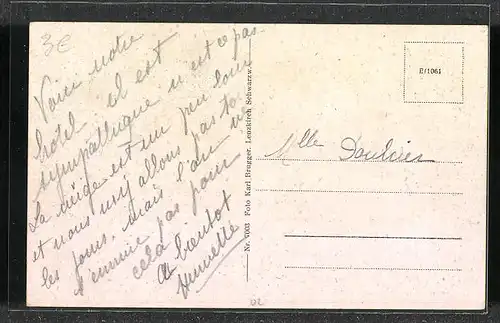 3€
Voici notre
hôtel il est
sympathique n'est ce pas
La neige est un peu loin
et nous n'y allons pas to
les jours. mais l'on ne
s'ennuie pas pour
cela
A bientot
Henriette
Nr. 7003 Foto Karl Brugger, Lenzkirch Schwarzw.
R/1061
Mlle
02